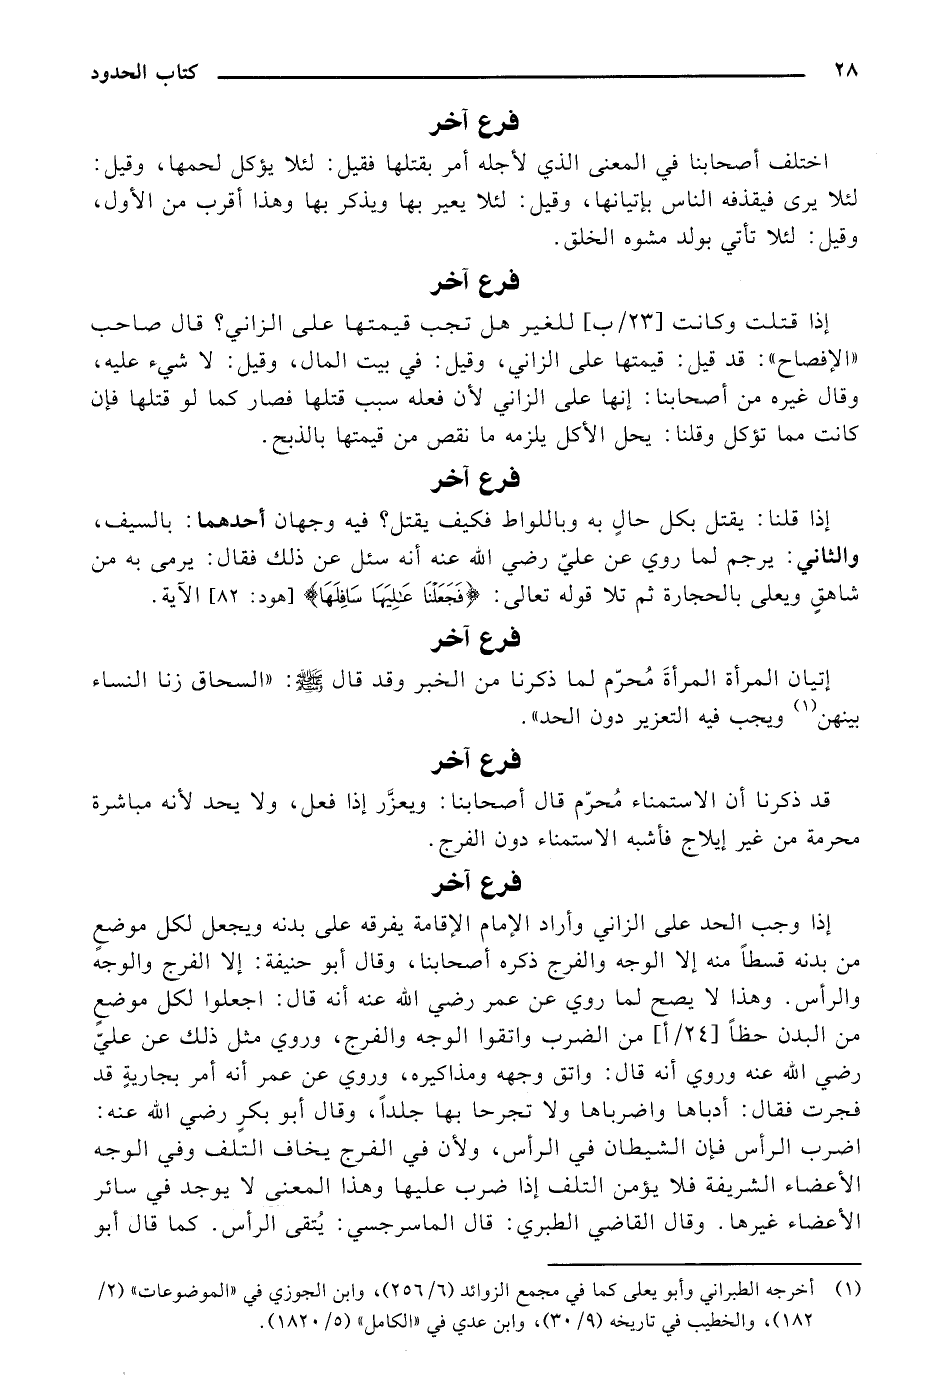 ٢٨ كتاب الحدود
فرع آخر
اختلف أصحابنا في المعنى الذي لأجله أمر بقتلها فقيل: لئلا يؤكل لحمها، وقيل:
لئلا يرى فيقذفه الناس بإتيانها، وقيل: لئلا يعير بها ويذكر بها وهذا أقرب من الأول،
وقيل: لئلا تأتي بولد مشوه الخلق.
فرع آخر
إذا قتلت وكانت [٢٣/ب] للغير هل تجب قيمتها على الزاني؟ قال صاحب
«الإفصاح»: قد قيل: قيمتها على الزاني، وقيل: في بيت المال، وقيل: لا شيء عليه،
وقال غيره من أصحابنا: إنها على الزاني لأن فعله سبب قتلها فصار كما لو قتلها فإن
كانت مما تؤكل وقلنا: يحل الأكل يلزمه ما نقص من قيمتها بالذبح.
فرع آخر
إذا قلنا: يقتل بكل حالٍ به وباللواط فكيف يقتل؟ فيه وجهان أحدهما: بالسيف،
والثاني: يرجم لما روي عن عليّ رضي الله عنه أنه سئل عن ذلك فقال: يرمى به من
شاهقٍ ويعلى بالحجارة ثم تلا قوله تعالى: ﴿فَجَعَلْنَا عَٰلِيَهَا سَافِلَهَا﴾ [هود: ٨٢] الآية.
فرع آخر
إتيان المرأة المرأةَ مُحرّم لما ذكرنا من الخبر وقد قال ﷺ: «السحاق زنا النساء
بينهن(١) ويجب فيه التعزير دون الحد».
فرع آخر
قد ذكرنا أن الاستمناء مُحرّم قال أصحابنا: ويعزَّر إذا فعل، ولا يحد لأنه مباشرة
محرمة من غير إيلاج فأشبه الاستمناء دون الفرج.
فرع آخر
إذا وجب الحد على الزاني وأراد الإمام الإقامة يفرقه على بدنه ويجعل لكل موضعٍ
من بدنه قسطاً منه إلا الوجه والفرج ذكره أصحابنا، وقال أبو حنيفة: إلا الفرج والوجه
والرأس. وهذا لا يصح لما روي عن عمر رضي الله عنه أنه قال: اجعلوا لكل موضعٍ
من البدن حظاً [٢٤/أ] من الضرب واتقوا الوجه والفرج، وروي مثل ذلك عن عليّ
رضي الله عنه وروي أنه قال: واتق وجهه ومذاكيره، وروي عن عمر أنه أمر بجاريةٍ قد
فجرت فقال: أدباها واضرباها ولا تجرحا بها جلداً، وقال أبو بكرٍ رضي الله عنه:
اضرب الرأس فإن الشيطان في الرأس، ولأن في الفرج يخاف التلف وفي الوجه
الأعضاء الشريفة فلا يؤمن التلف إذا ضرب عليها وهذا المعنى لا يوجد في سائر
الأعضاء غيرها. وقال القاضي الطبري: قال الماسرجسي: يُتقى الرأس. كما قال أبو
(١) أخرجه الطبراني وأبو يعلى كما في مجمع الزوائد (٦/ ٢٥٦)، وابن الجوزي في «الموضوعات» (٢/
١٨٢)، والخطيب في تاريخه (٩/ ٣٠)، وابن عدي في «الكامل» (٥/ ١٨٢٠).